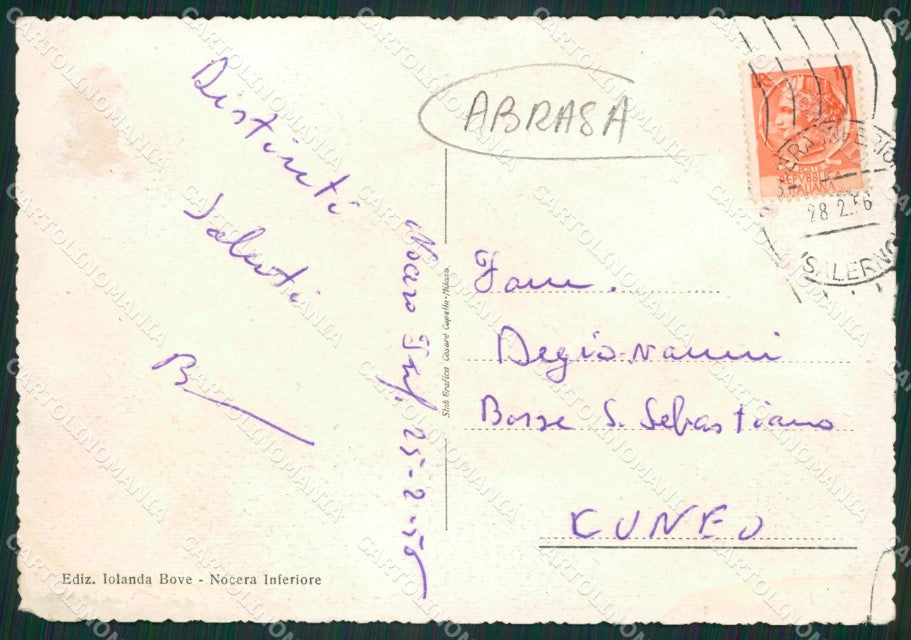 Distinti
Saluti
B
Nocera Inf. 25-2-56
ABRASA
Stab Grafico Cesare Capello-Milano
Fam.
Degiovanni
Borgo S. Sebastiano
CUNEO
Ediz. Iolanda Bove - Nocera Inferiore
L 10
POSTE
REPVBBLICA
ITALIANA
NOCERA INFERIORE
28 2.56
SALERNO
CARTOLINOMANIA